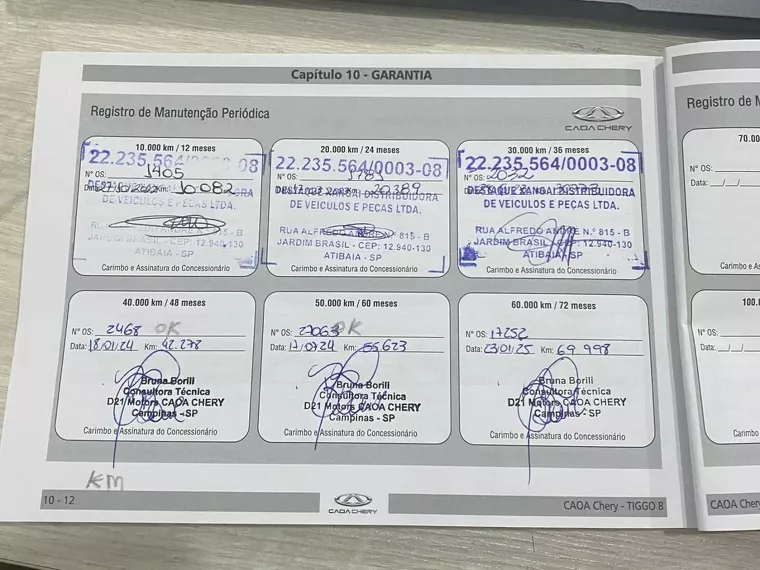 Capítulo 10 - GARANTIA
Registro de Manutenção Periódica
CAOA CHERY
10.000 km / 12 meses
22.235.564/0003-08
Nº OS: 1405
Data: Km: 10.082
DE VEICULOS E PEÇAS LTDA.
815 - B
JARDIM BRASIL - CEP: 12.940-130
ATIBAIA - SP
Carimbo e Assinatura do Concessionário
20.000 km / 24 meses
22.235.564/0003-08
Nº OS:
20.389
DISTRIBUIDORA
DE VEICULOS E PEÇAS LTDA.
RUA ALFREDO ANDRE N.º 815 - B
JARDIM BRASIL - CEP: 12.940-130
ATIBAIA - SP
Carimbo e Assinatura do Concessionário
30.000 km / 36 meses
22.235.564/0003-08
Nº OS: 2032
DESTAQUE ZANGAI DISTRIBUIDORA
DE VEICULOS E PEÇAS LTDA.
RUA ALFREDO ANDRE N.º 815 - B
JARDIM BRASIL - CEP: 12.940-130
ATIBAIA - SP
Carimbo e Assinatura do Concessionário
40.000 km / 48 meses
Nº OS: 2468 OK
Data: 18/01/24 Km: 42.278
Bruna Borili
Consultora Técnica
D21 Motors CAOA CHERY
Campinas - SP
Carimbo e Assinatura do Concessionário
50.000 km / 60 meses
Nº OS: 27063 OK
Data: Km: 55.623
Bruna Borili
Consultora Técnica
D21 Motors CAOA CHERY
Campinas - SP
Carimbo e Assinatura do Concessionário
60.000 km / 72 meses
Nº OS: 17252
Data: 23/01/25 Km: 69.998
Bruna Borili
Consultora Técnica
D21 Motors CAOA CHERY
Campinas - SP
Carimbo e Assinatura do Concessionário
KM
10 - 12
CAOA CHERY
CAOA Chery - TIGGO 8
Registro de
70.00
Nº OS:
Data: / /
100.0
Nº OS:
Data: / /
CAOA Cher